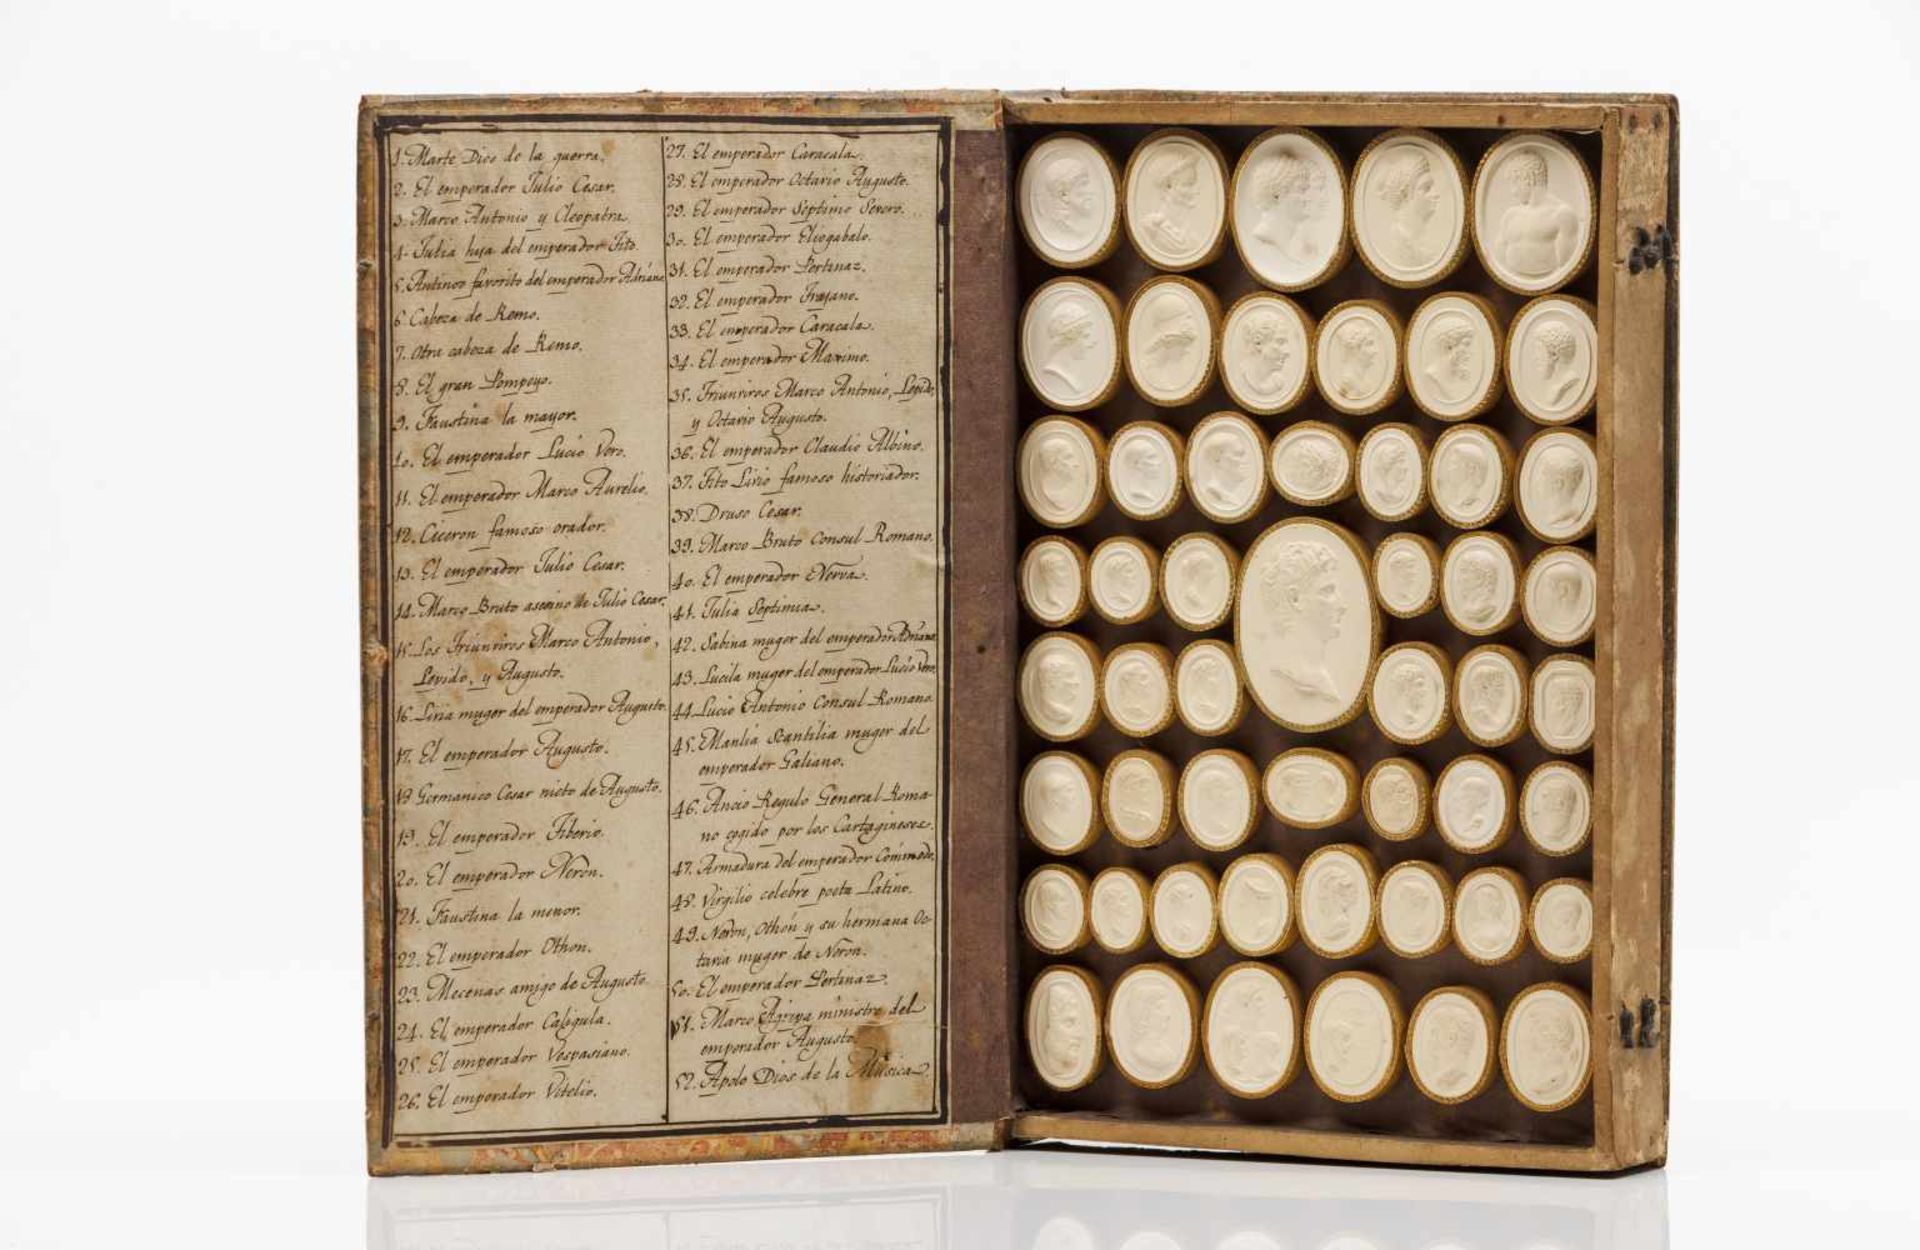 1. Marte Dios de la guerra.
2. El emperador Julio Cesar.
3. Marco Antonio y Cleopatra
4. Julia hija del emperador Tito.
5. Antinoo favorito del emperador Adriano
6. Cabeza de Remo.
7. Otra cabeza de Remo.
8. El gran Pompeyo.
9. Faustina la mayor.
10. El emperador Lucio Vero.
11. El emperador Marco Aurelio.
12. Ciceron famoso orador.
13. El emperador Julio Cesar.
14. Marco Bruto asesino de Julio Cesar.
15. Los Triunviros Marco Antonio,
Lepido, y Augusto.
16. Livia muger del emperador Augusto.
17. El emperador Augusto.
18. Germanico Cesar nieto de Augusto.
19. El emperador Tiberio.
20. El emperador Nerón.
21. Faustina la menor.
22. El emperador Othon.
23. Mecenas amigo de Augusto.
24. El emperador Caligula.
25. El emperador Vespasiano.
26. El emperador Vitelio.
27. El emperador Caracala.
28. El emperador Octavio Augusto.
29. El emperador Septimo Severo.
30. El emperador Eliogabalo.
31. El emperador Pertinaz.
32. El emperador Trajano.
33. El emperador Caracala.
34. El emperador Maximo.
35. Triunviros Marco Antonio, Lepido,
y Octavio Augusto.
36. El emperador Claudio Albino.
37. Tito Livio famoso historiador.
38. Druso Cesar.
39. Marco Bruto Consul Romano.
40. El emperador Nerva.
41. Julia Septimia.
42. Sabina muger del emperador Adriano
43. Lucila muger del emperador Lucio Vero.
44. Lucio Antonio Consul Romano
45. Manlia Scantilia muger del
emperador Galiano.
46. Ancio Regulo General Roma-
no cogido por los Cartagineses.
47. Armadura del emperador Cómmodo.
48. Virgilio celebre poeta Latino.
49. Nerón, Othón y su hermana Oc-
tavia muger de Nerón.
50. El emperador Pertinaz.
51. Marco Agripa ministro del
emperador Augusto.
52. Apolo Dios de la Música.